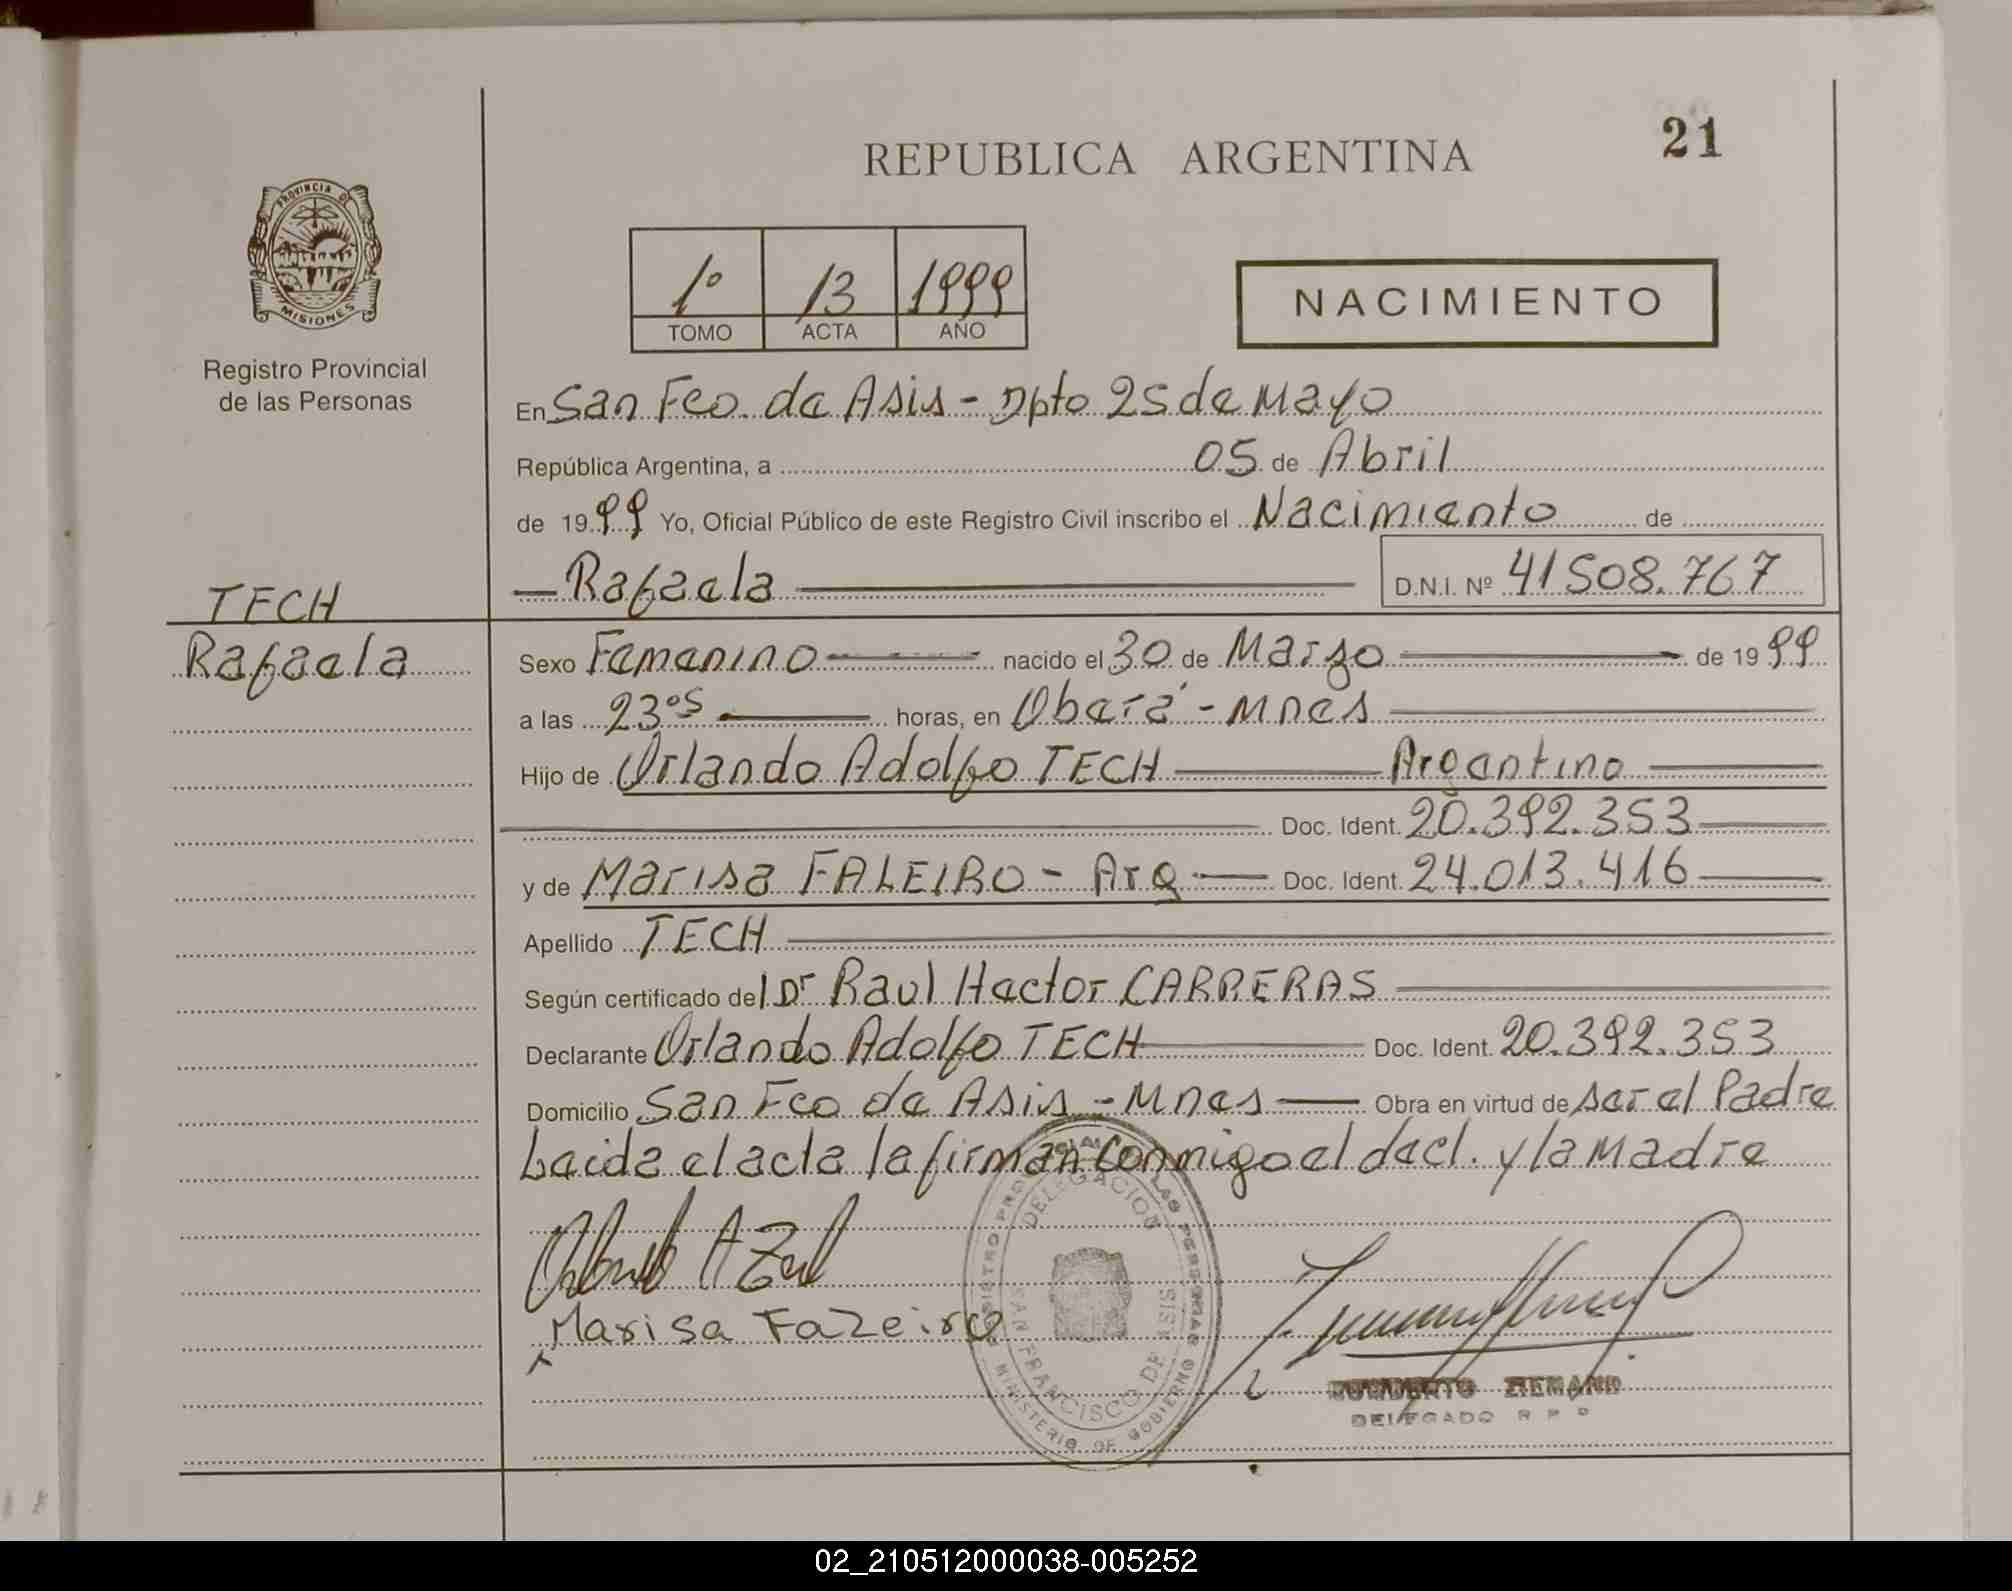 REPUBLICA ARGENTINA
21
PROVINCIA DE
MISIONES
Registro Provincial
de las Personas
1º 13 1999
TOMO ACTA AÑO
NACIMIENTO
En San Fco. de Asis - Dpto 25 de Mayo
República Argentina, a 05 de Abril
de 1999 Yo, Oficial Público de este Registro Civil inscribo el Nacimiento de
Rafaela D.N.I. Nº 41508.767
TECH
Rafaela
Sexo Femenino nacido el 30 de Marzo de 1999
a las 23⁰⁵ horas, en Oberá - Mnes
Hijo de Orlando Adolfo TECH Argentino
Doc. Ident. 20.392.353
y de Marisa FALEIRO - Arg Doc. Ident. 24.013.416
Apellido TECH
Según certificado del Dr Raul Hector CARRERAS
Declarante Orlando Adolfo TECH Doc. Ident. 20.392.353
Domicilio San Fco de Asis - Mnes Obra en virtud de ser el Padre
Leida el acta la firman conmigo el decl. y la Madre
Marisa Faleiro
DELEGACION
SAN FRANCISCO DE ASIS
MINISTERIO DE GOBIERNO
DELEGADO R P P
02_210512000038-005252